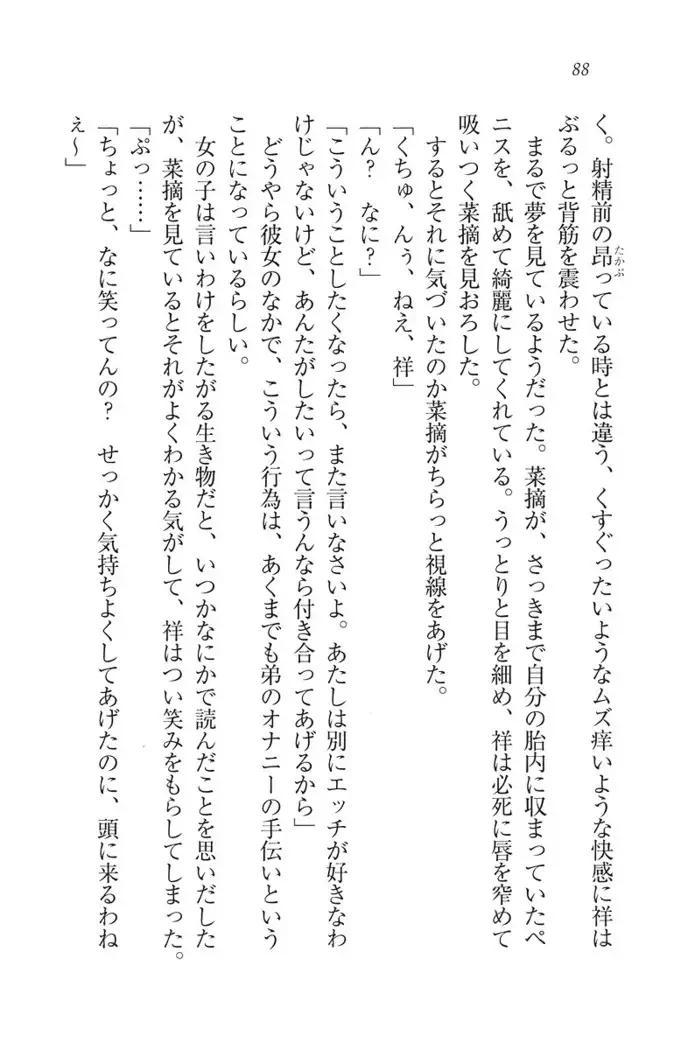 88
く。射精前の昂っている時とは違う、くすぐったいようなムズ痒いような快感に祥は
たかぶ
ぶるっと背筋を震わせた。
まるで夢を見ているようだった。菜摘が、さっきまで自分の胎内に収まっていたペ
ニスを、舐めて綺麗にしてくれている。うっとりと目を細め、祥は必死に唇を窄めて
吸いつく菜摘を見おろした。
するとそれに気づいたのか菜摘がちらっと視線をあげた。
「くちゅ、んぅ、ねえ、祥」
「ん？　なに？」
「こういうことしたくなったら、また言いなさいよ。あたしは別にエッチが好きなわ
けじゃないけど、あんたがしたいって言うんなら付き合ってあげるから」
どうやら彼女のなかで、こういう行為は、あくまでも弟のオナニーの手伝いという
ことになっているらしい。
女の子は言いわけをしたがる生き物だと、いつかなにかで読んだことを思いだした
が、菜摘を見ているとそれがよくわかる気がして、祥はつい笑みをもらしてしまった。
「ぷっ……」
「ちょっと、なに笑ってんの？　せっかく気持ちよくしてあげたのに、頭に来るわね
ぇ～」